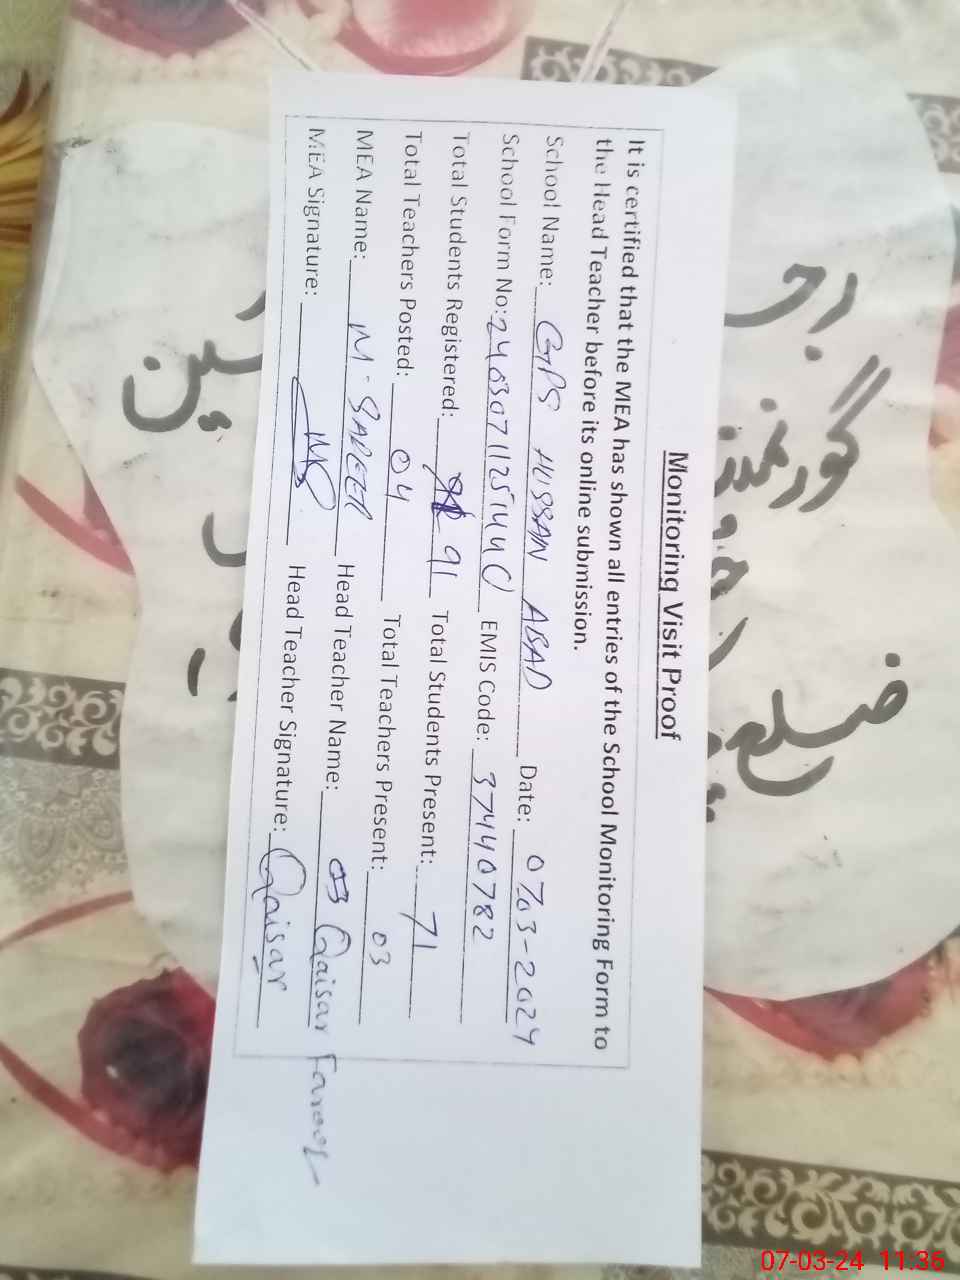 Monitoring Visit Proof
It is certified that the MEA has shown all entries of the School Monitoring Form to
the Head Teacher before its online submission.
School Name: GPS HISSAN ABAD Date: 07-03-2024
School Form No: EMIS Code: 37440782
Total Students Registered: 91 Total Students Present: 71
Total Teachers Posted: 04 Total Teachers Present: 03
MEA Name: M. Head Teacher Name: Qaisar Farooq
MEA Signature: Head Teacher Signature: Qaisar
ضلع
07-03-24 11:36